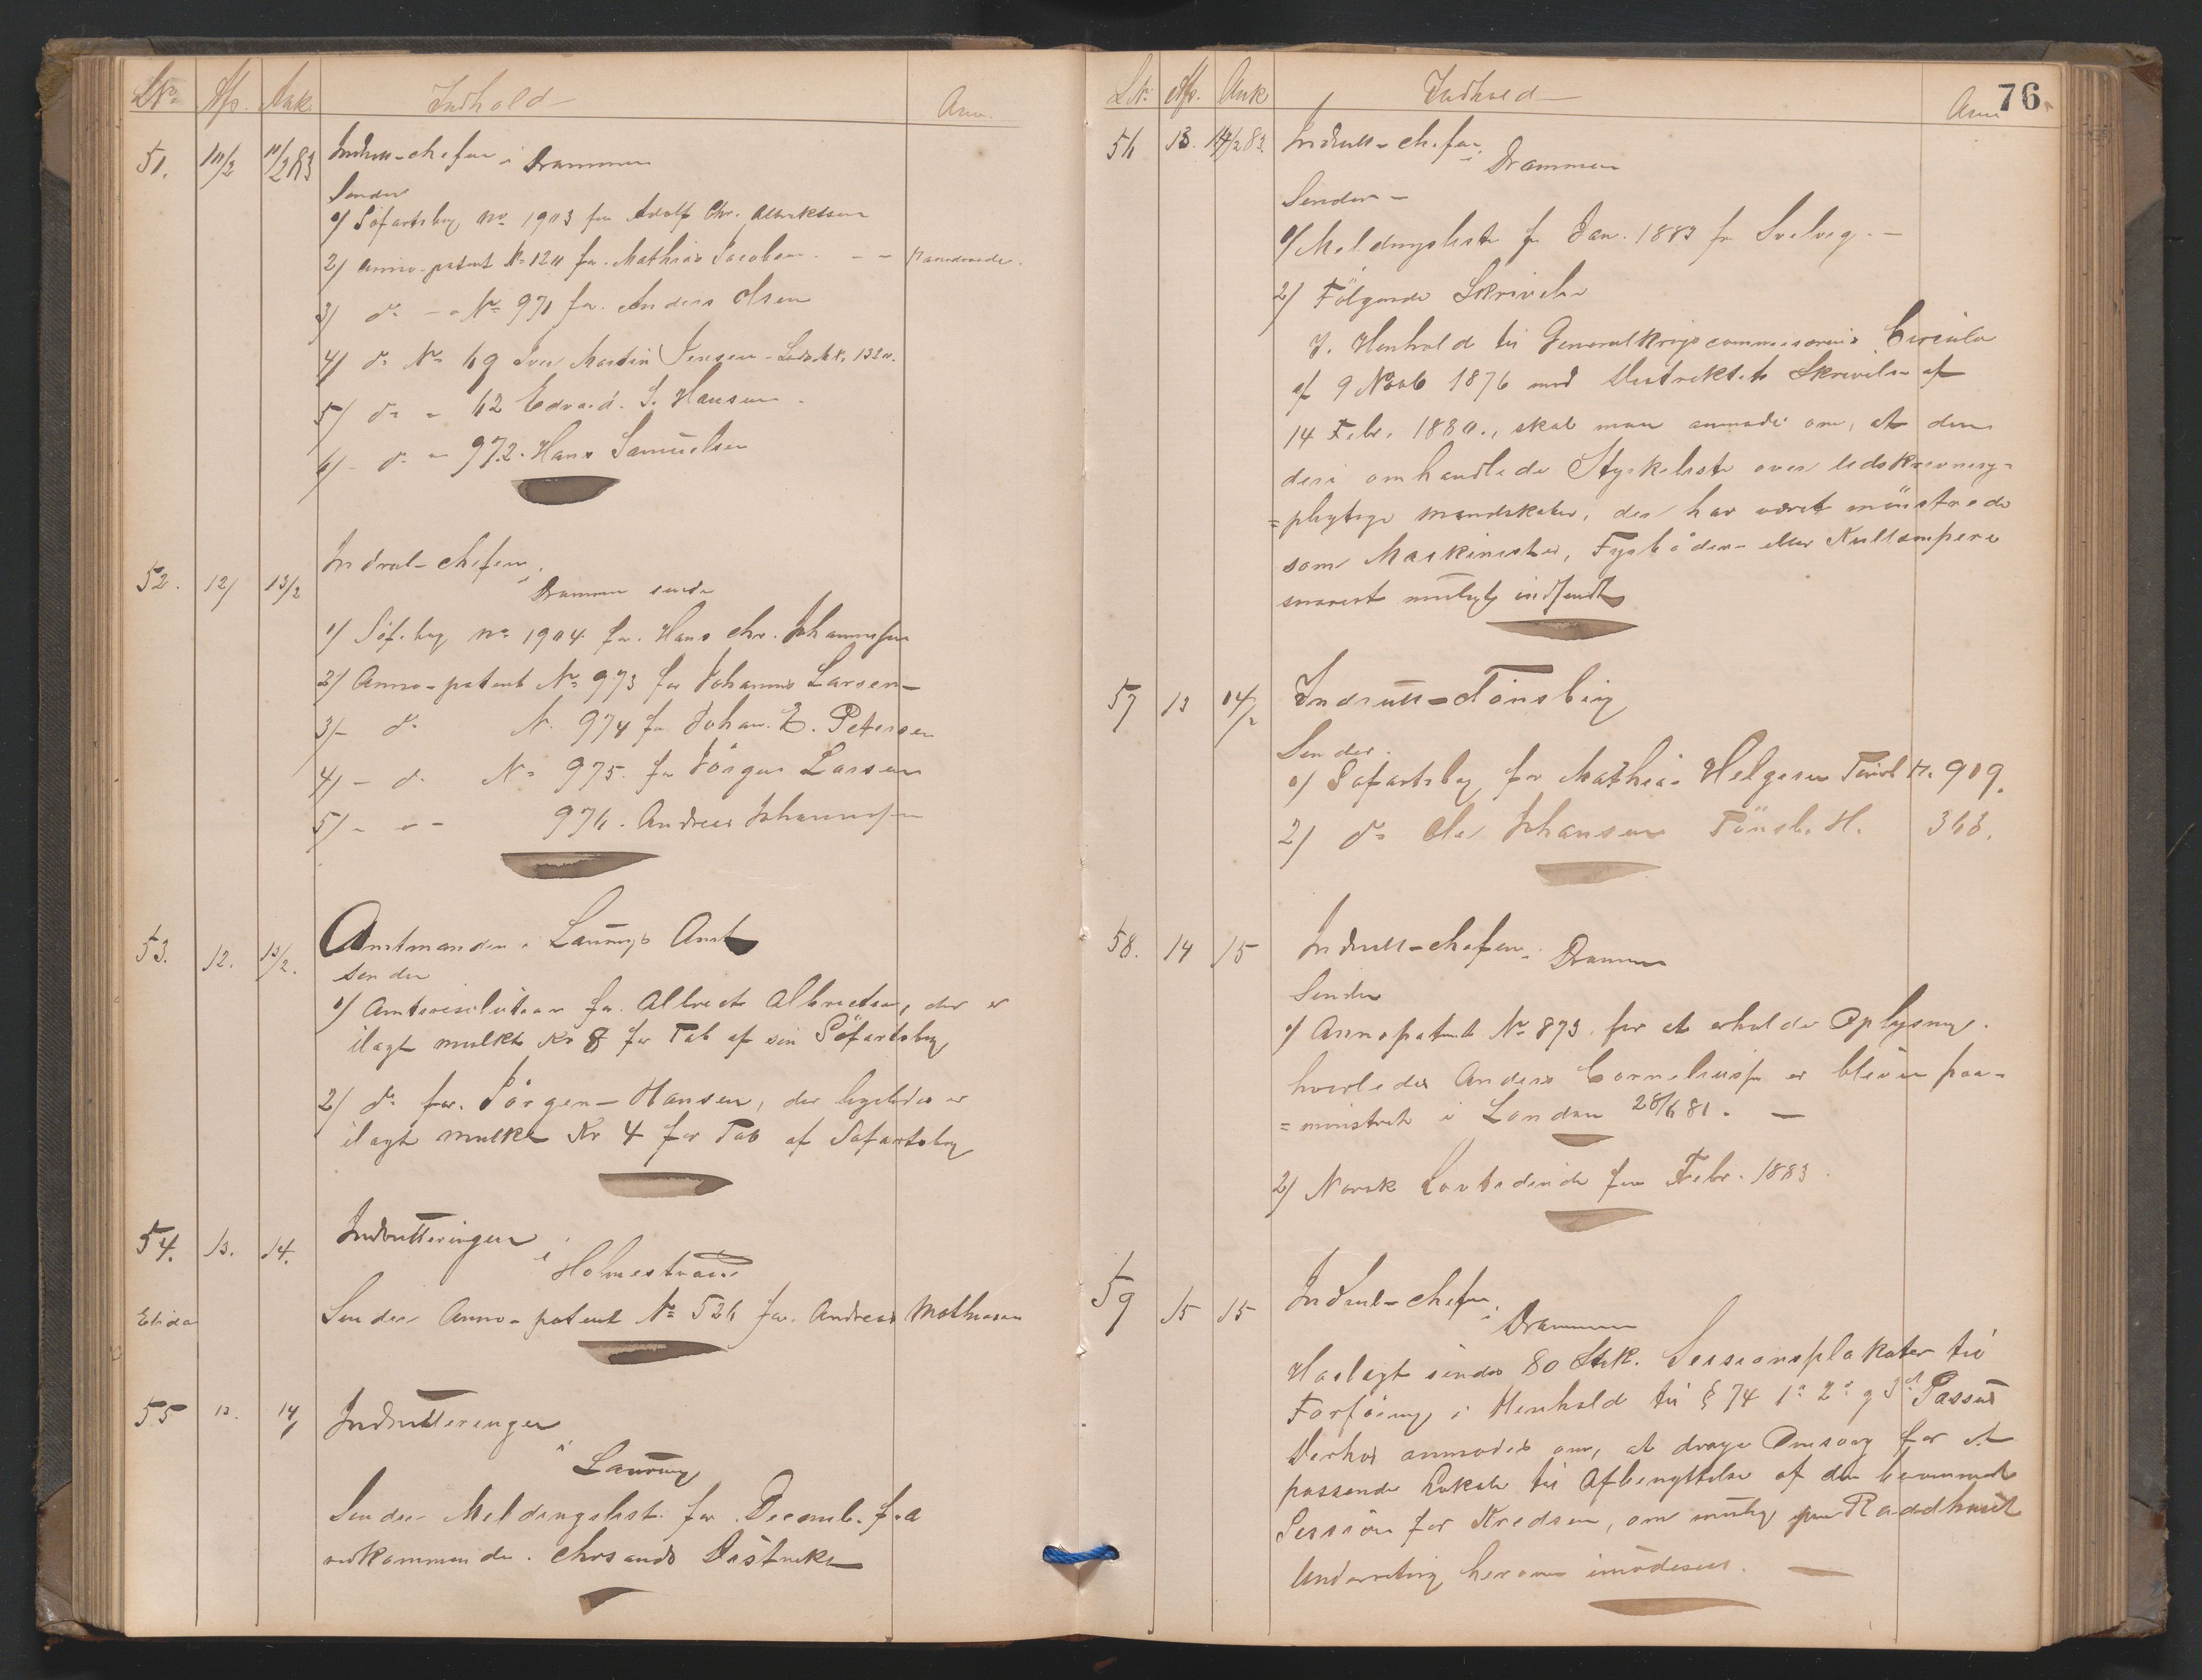 LNo Afs. Ank. Indhold Anm.
51. 10/2 11/2 83 Indrull-chefen i Drammen
Sender
1/ Söfartsbog No 1903 for Adolf Chr. Albrektsen
2/ Anno-patent No 1211 for Mathias Jacobsen. - -
3/ do - No 971 for Anders Olsen
4/ do No 69 Iver Martin Jensen
5/ do - 62 Edvard. S. Hansen.
6/ - do - 972. Hans Samuelsen
52. 12/ 13/2 Indrul-chefen
i Drammen sender
1/ Söf.bog No 1904 for Hans Chr. Johannesen
2/ Anno-patent No 973 for Johannes Larsen -
3/- do N. 974 for Johan. E. Petersen
4/- do No 975. for Jörgen Larsen
5/- - - 976. Andreas Johannesen
53. 12. 13/2. Amtmanden i Laurvigs Amt
sender
1/ Amtsresolution for Albrect Albrectsen, der er
ilagt mulkt Kr 8 for Tab af sin Söfartsbog
2/ do for. Jörgen - Hansen, der ligeledes er
ilagt mulkt Kr 4 for Tab af Söfartsbog
54. 13. 14. Indrulleringen
i Holmestrand
Sender Anno-patent No 526 for Andreas Mathiesen
55 13. 14/ Indrulleringen
i Laurvig
Sender Meldingsliste for Decemb. f.a
vedkommende. Chrsands Distrikt
76
LNo Afs. Ank Indhold Anm
56 13. 14/2 83. Indrull-chefen
i Drammen
Sender -
1/ Meldingsliste for Jan. 1883 for Svelvig. -
2/ Fölgende Skrivelse
I. Henhold til Generalkrigscommissariets Circulær
af 9 Novb 1876 med Distriktets Skrivelse af
14 Febr. 1880., skal man anmode om, at den
deri omhandlede Styrkeliste over udskrivnings-
=pligtige mandskaber, der har været mönstrede
som Maskinister, Fyrbödere eller Kullempere
snarest muligt indsendt
57 13 14/2 Indrull-Tönsberg
Sender.
1/ Söfartsbog for Mathias Helgesen 909.
2/ do Ole Johansen Tönsb. H. 363.
58. 14 15 Indrull-chefen i Drammen
Sender
1/ Annopatent No 873. for at erholde Oplysning.
hvorledes Anders Corneliussen er bleven paa-
=mönstret i London 28/6 81. -
2/ Norsk Lovtidende for Febr. 1883.
59 15 15 Indrul-chefen
i Drammen
Vedlagt sendes 80 Stk. Sessionsplakater til
Forföining i Henhold til § 74 1o 2o og 3d Passus
Derhos anmodes om, at drage Omsorg for et
passende Lokale til Afbenyttelse af den berammede
Session for Kredsen, om mulig paa Raadhuset
Underretning herom imödesees. -